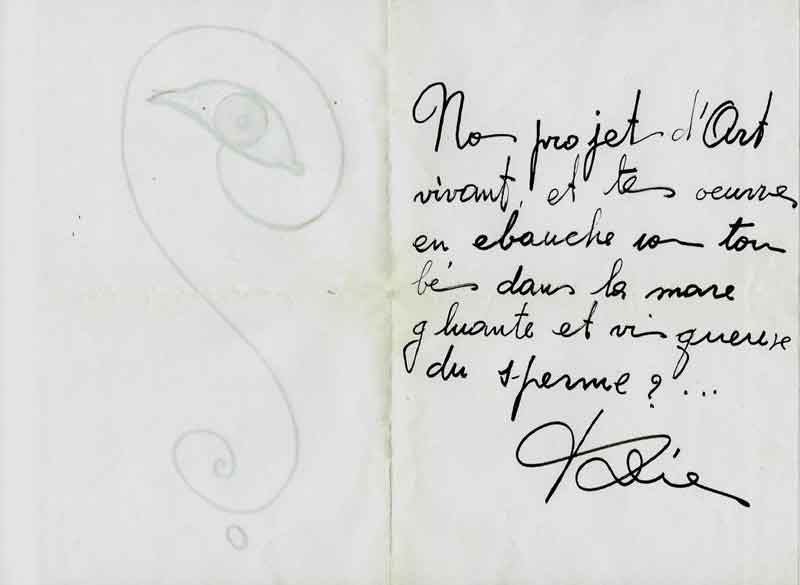 Nos projet d'Art
vivant, et tes oeuvres
en ebauche son tom
bés dans la mare
gluante et visqueuse
du sperme ? ...